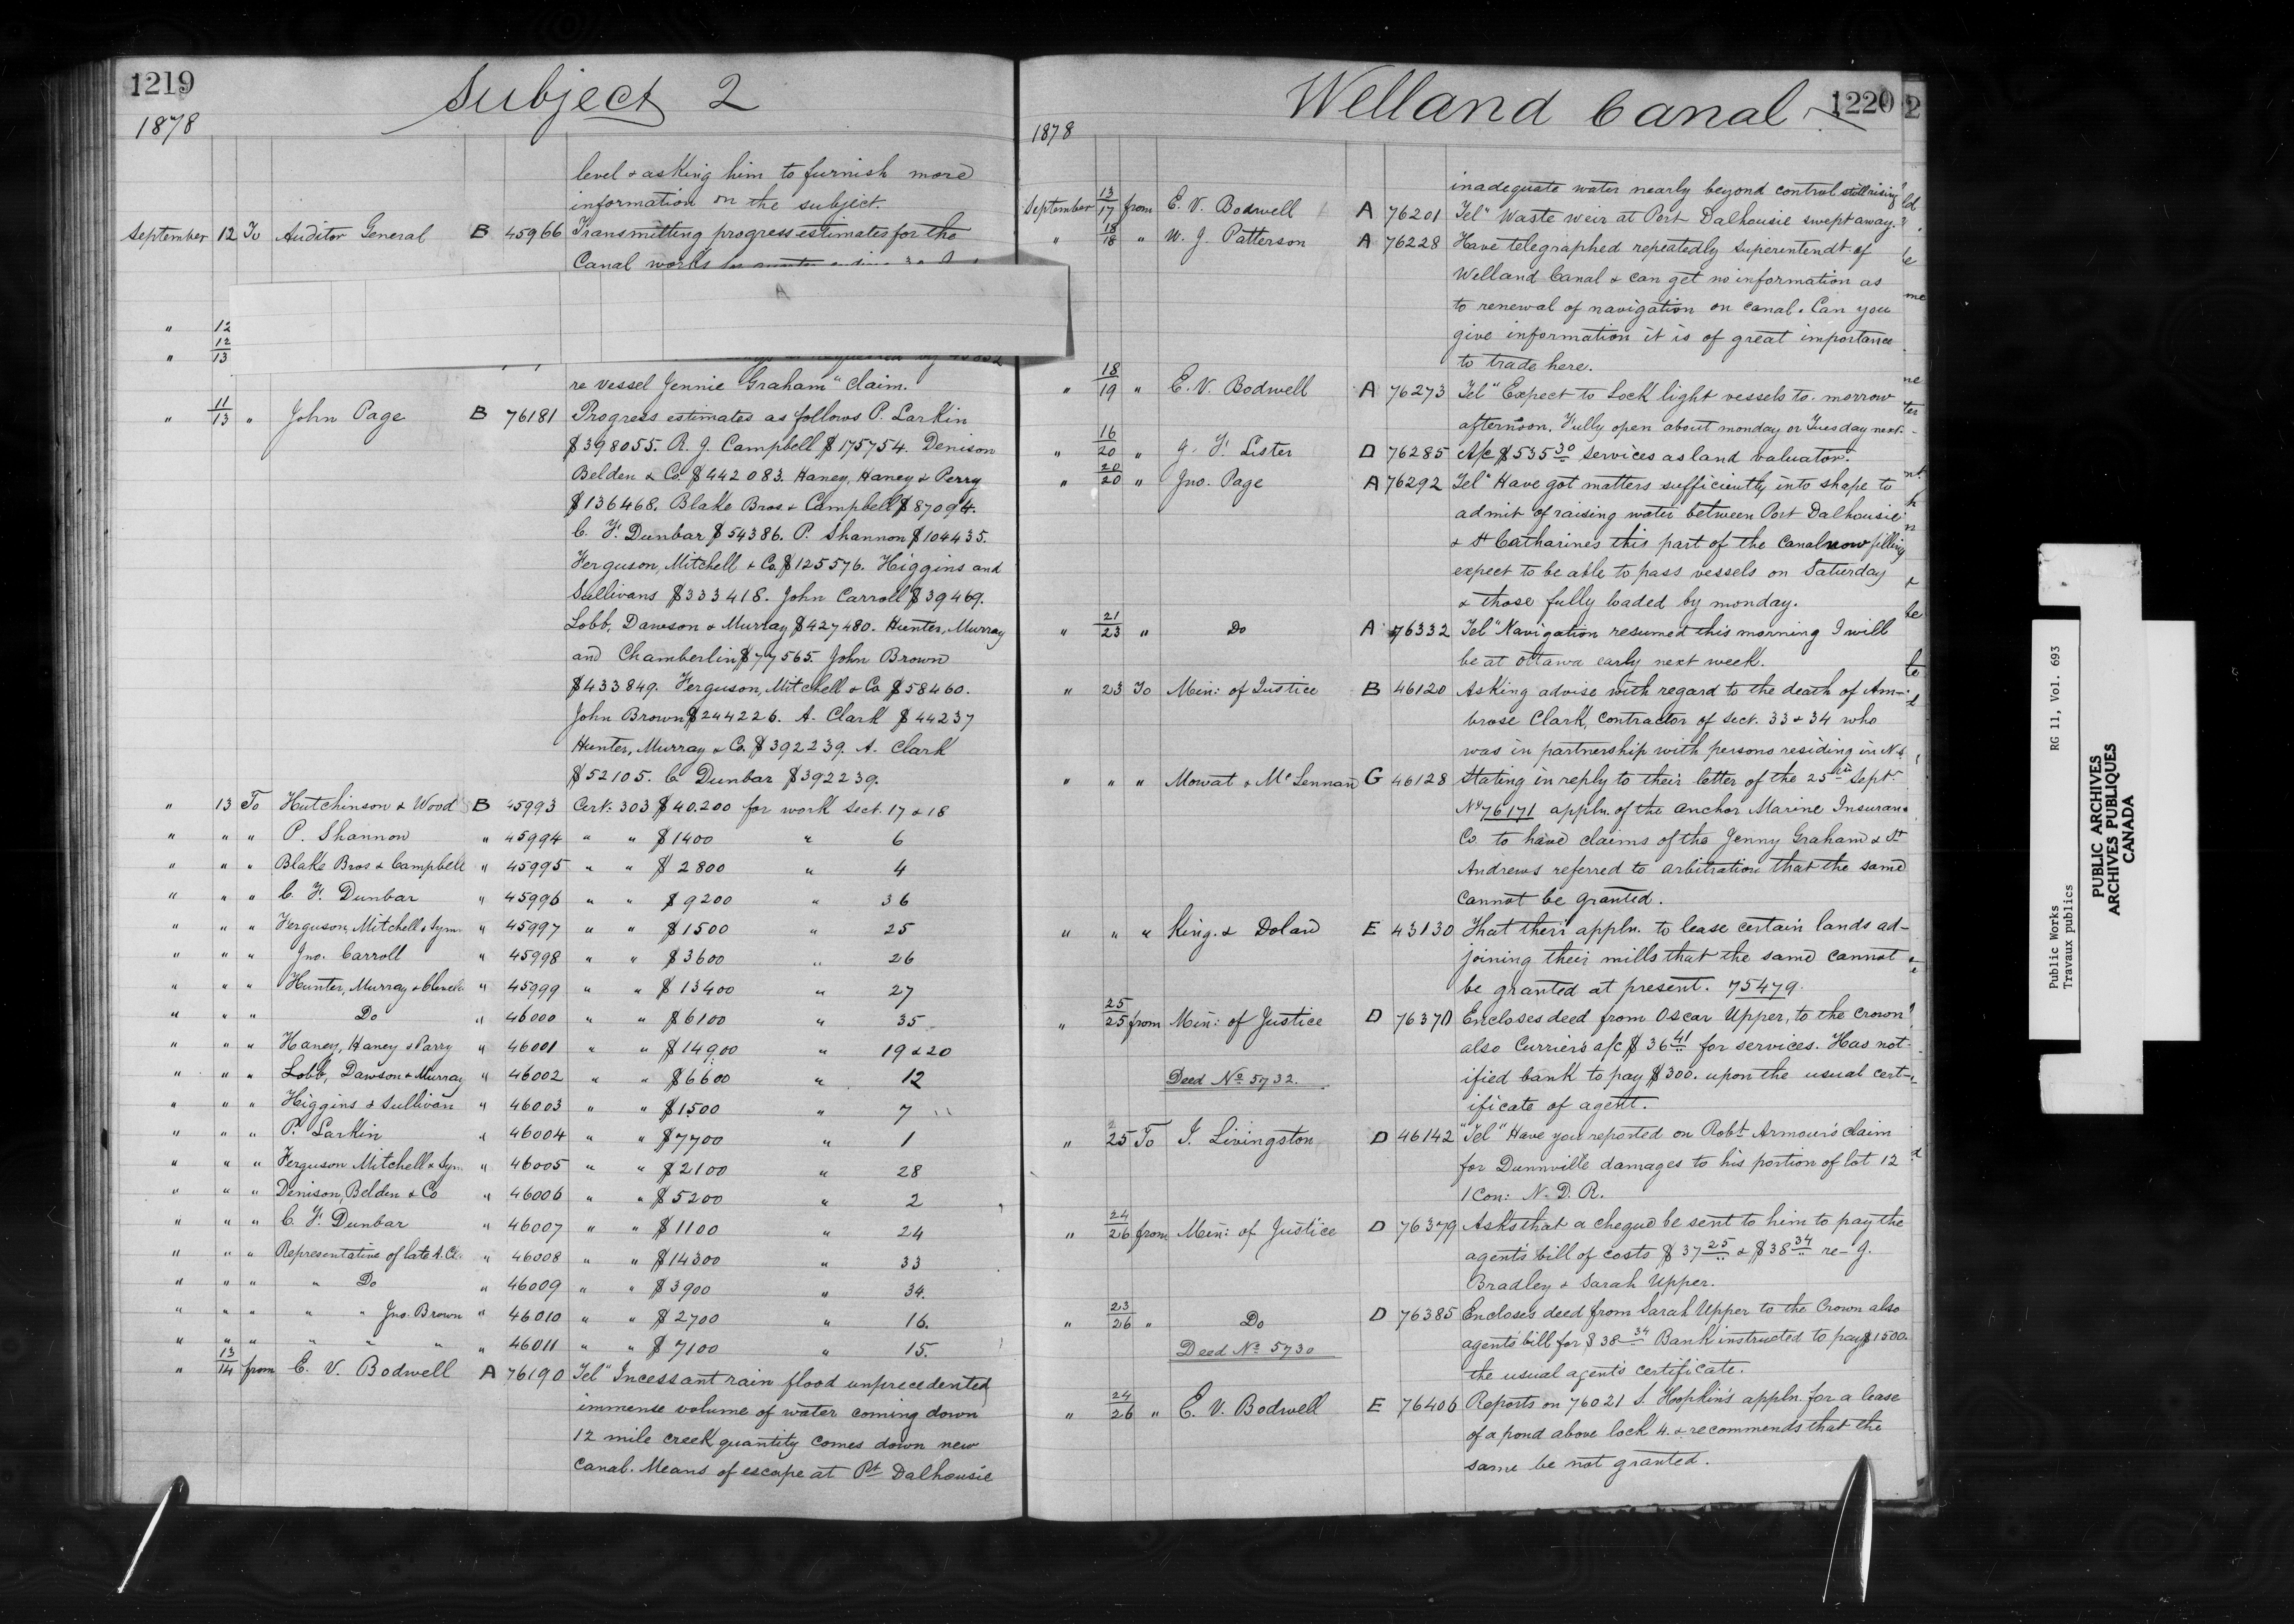 1219
Subject 2
1878
level & asking him to furnish more
information on the subject.
September 12 To Auditor General B 45966 Transmitting progress estimates for the
Canal works
A
" 12
" 12/13
re vessel Jennie Graham" claim.
" 11/13 " John Page B 76181 Progress estimates as follows P. Larkin
$398055. R. J. Campbell $175754. Denison
Belden & Co. $442083. Haney, Haney & Perry
$136468. Blake Bros. & Campbell $87094.
C. F. Dunbar $54386. P. Shannon $104435.
Ferguson, Mitchell & Co. $125576. Higgins and
Sullivans $333418. John Carroll $39469.
Lobb, Dawson & Murray $427480. Hunter, Murray
and Chamberlin $77565. John Brown
$433849. Ferguson, Mitchell & Co $58460.
John Brown $244226. A. Clark $44237
Hunter, Murray & Co. $392239. A. Clark
$52105. C Dunbar $392239.
" 13 To Hutchinson & Wood B 45993 Cert. 303 $40.200 for work Sect. 17 & 18
" " " P. Shannon " 45994 " " $1400 " 6
" " " Blake Bros & Campbell " 45995 " " $2800 " 4
" " " C. F. Dunbar " 45996 " " $9200 " 36
" " " Ferguson, Mitchell & Sym. " 45997 " " $1500 " 25
" " " Jno. Carroll " 45998 " " $3600 " 26
" " " Hunter, Murray & " 45999 " " $13400 " 27
" " " Do " 46000 " " $6100 " 35
" " " Haney, Haney & Parry " 46001 " " $14900 " 19 & 20
" " " Lobb, Dawson & Murray " 46002 " " $6600 " 12
" " " Higgins & Sullivan " 46003 " " $1500 " 7
" " " P. Larkin " 46004 " " $7700 " 1
" " " Ferguson Mitchell & Sym. " 46005 " " $2100 " 28
" " " Denison, Belden & Co " 46006 " " $5200 " 2
" " " C. F. Dunbar " 46007 " " $1100 " 24
" " " Representative of late A. Cl. " 46008 " " $14300 " 33
" " " " Do " 46009 " " $3900 " 34.
" " " " " Jno. Brown " 46010 " " $2700 " 16.
" " " " " " " 46011 " " $7100 " 15.
" 13/14 from E. V. Bodwell A 76190 Tel" Incessant rain flood unprecedented
immense volume of water coming down
12 mile creek quantity comes down new
Canal. Means of escape at Pt Dalhousie
1220
Welland Canal
2
1878
inadequate water nearly beyond control still rising"
September 13/17 from E. V. Bodwell A 76201 Tel" Waste weir at Port Dalhousie swept away."
" 18/18 " W. J. Patterson A 76228 Have telegraphed repeatedly Superintendt of
Welland Canal & can get no information as
to renewal of navigation on canal. Can you
give information it is of great importance
to trade here.
" 18/19 " E. V. Bodwell A 76273 Tel" Expect to Lock light vessels to-morrow
afternoon. Fully open about monday or Tuesday next.
" 16/20 " J. F. Lister D 76285 A/c $535 30 services as land valuator.
" 20/20 " Jno. Page A 76292 Tel" Have got matters sufficiently into shape to
admit of raising water between Port Dalhousie
& St Catharines this part of the Canal now filling
expect to be able to pass vessels on Saturday
& those fully loaded by monday.
" 21/23 " Do A 76332 Tel" Navigation resumed this morning I will
be at Ottawa early next week.
" 23 To Min: of Justice B 46120 Asking advise with regard to the death of Am-
brose Clark, Contractor of Sect. 33 & 34 who
was in partnership with persons residing in N.S.
" " " Mowat & McLennan G 46128 Stating in reply to their letter of the 25th Sept.
No 76171 appln. of the Anchor Marine Insurance
Co to have claims of the Jenny Graham & St
Andrews referred to arbitration that the same
cannot be granted.
" " " King. & Dolan E 43130 That their appln. to lease certain lands ad-
joining their mills that the same cannot
be granted at present. 75479.
" 25/25 from Min: of Justice D 76370 Encloses deed from Oscar Upper, to the Crown
also Curriers a/c $36 41 for services. Has not-
Deed No 5732. ified bank to pay $300. upon the usual cert-
ificate of agent.
" 25 To J. Livingston D 46142 "Tel" Have you reported on Robt Armour's claim
for Dunnville damages to his portion of lot 12
1 Con: N. D. R.
" 24/26 from Min: of Justice D 76379 Asks that a cheque be sent to him to pay the
agents bill of costs $37 25 & $38 34 re- J.
Bradley & Sarah Upper.
" 23/26 " Do D 76385 Encloses deed from Sarah Upper to the Crown also
Deed No 5730 agents bill for $38 34 Bank instructed to pay $1500.
the usual agents certificate.
" 24/26 " E. V. Bodwell E 76406 Reports on 76021 S. Hopkin's appln. for a lease
of a pond above lock 4. & recommends that the
same be not granted.
Public Works RG 11, Vol. 693
Travaux publics
PUBLIC ARCHIVES
ARCHIVES PUBLIQUES
CANADA